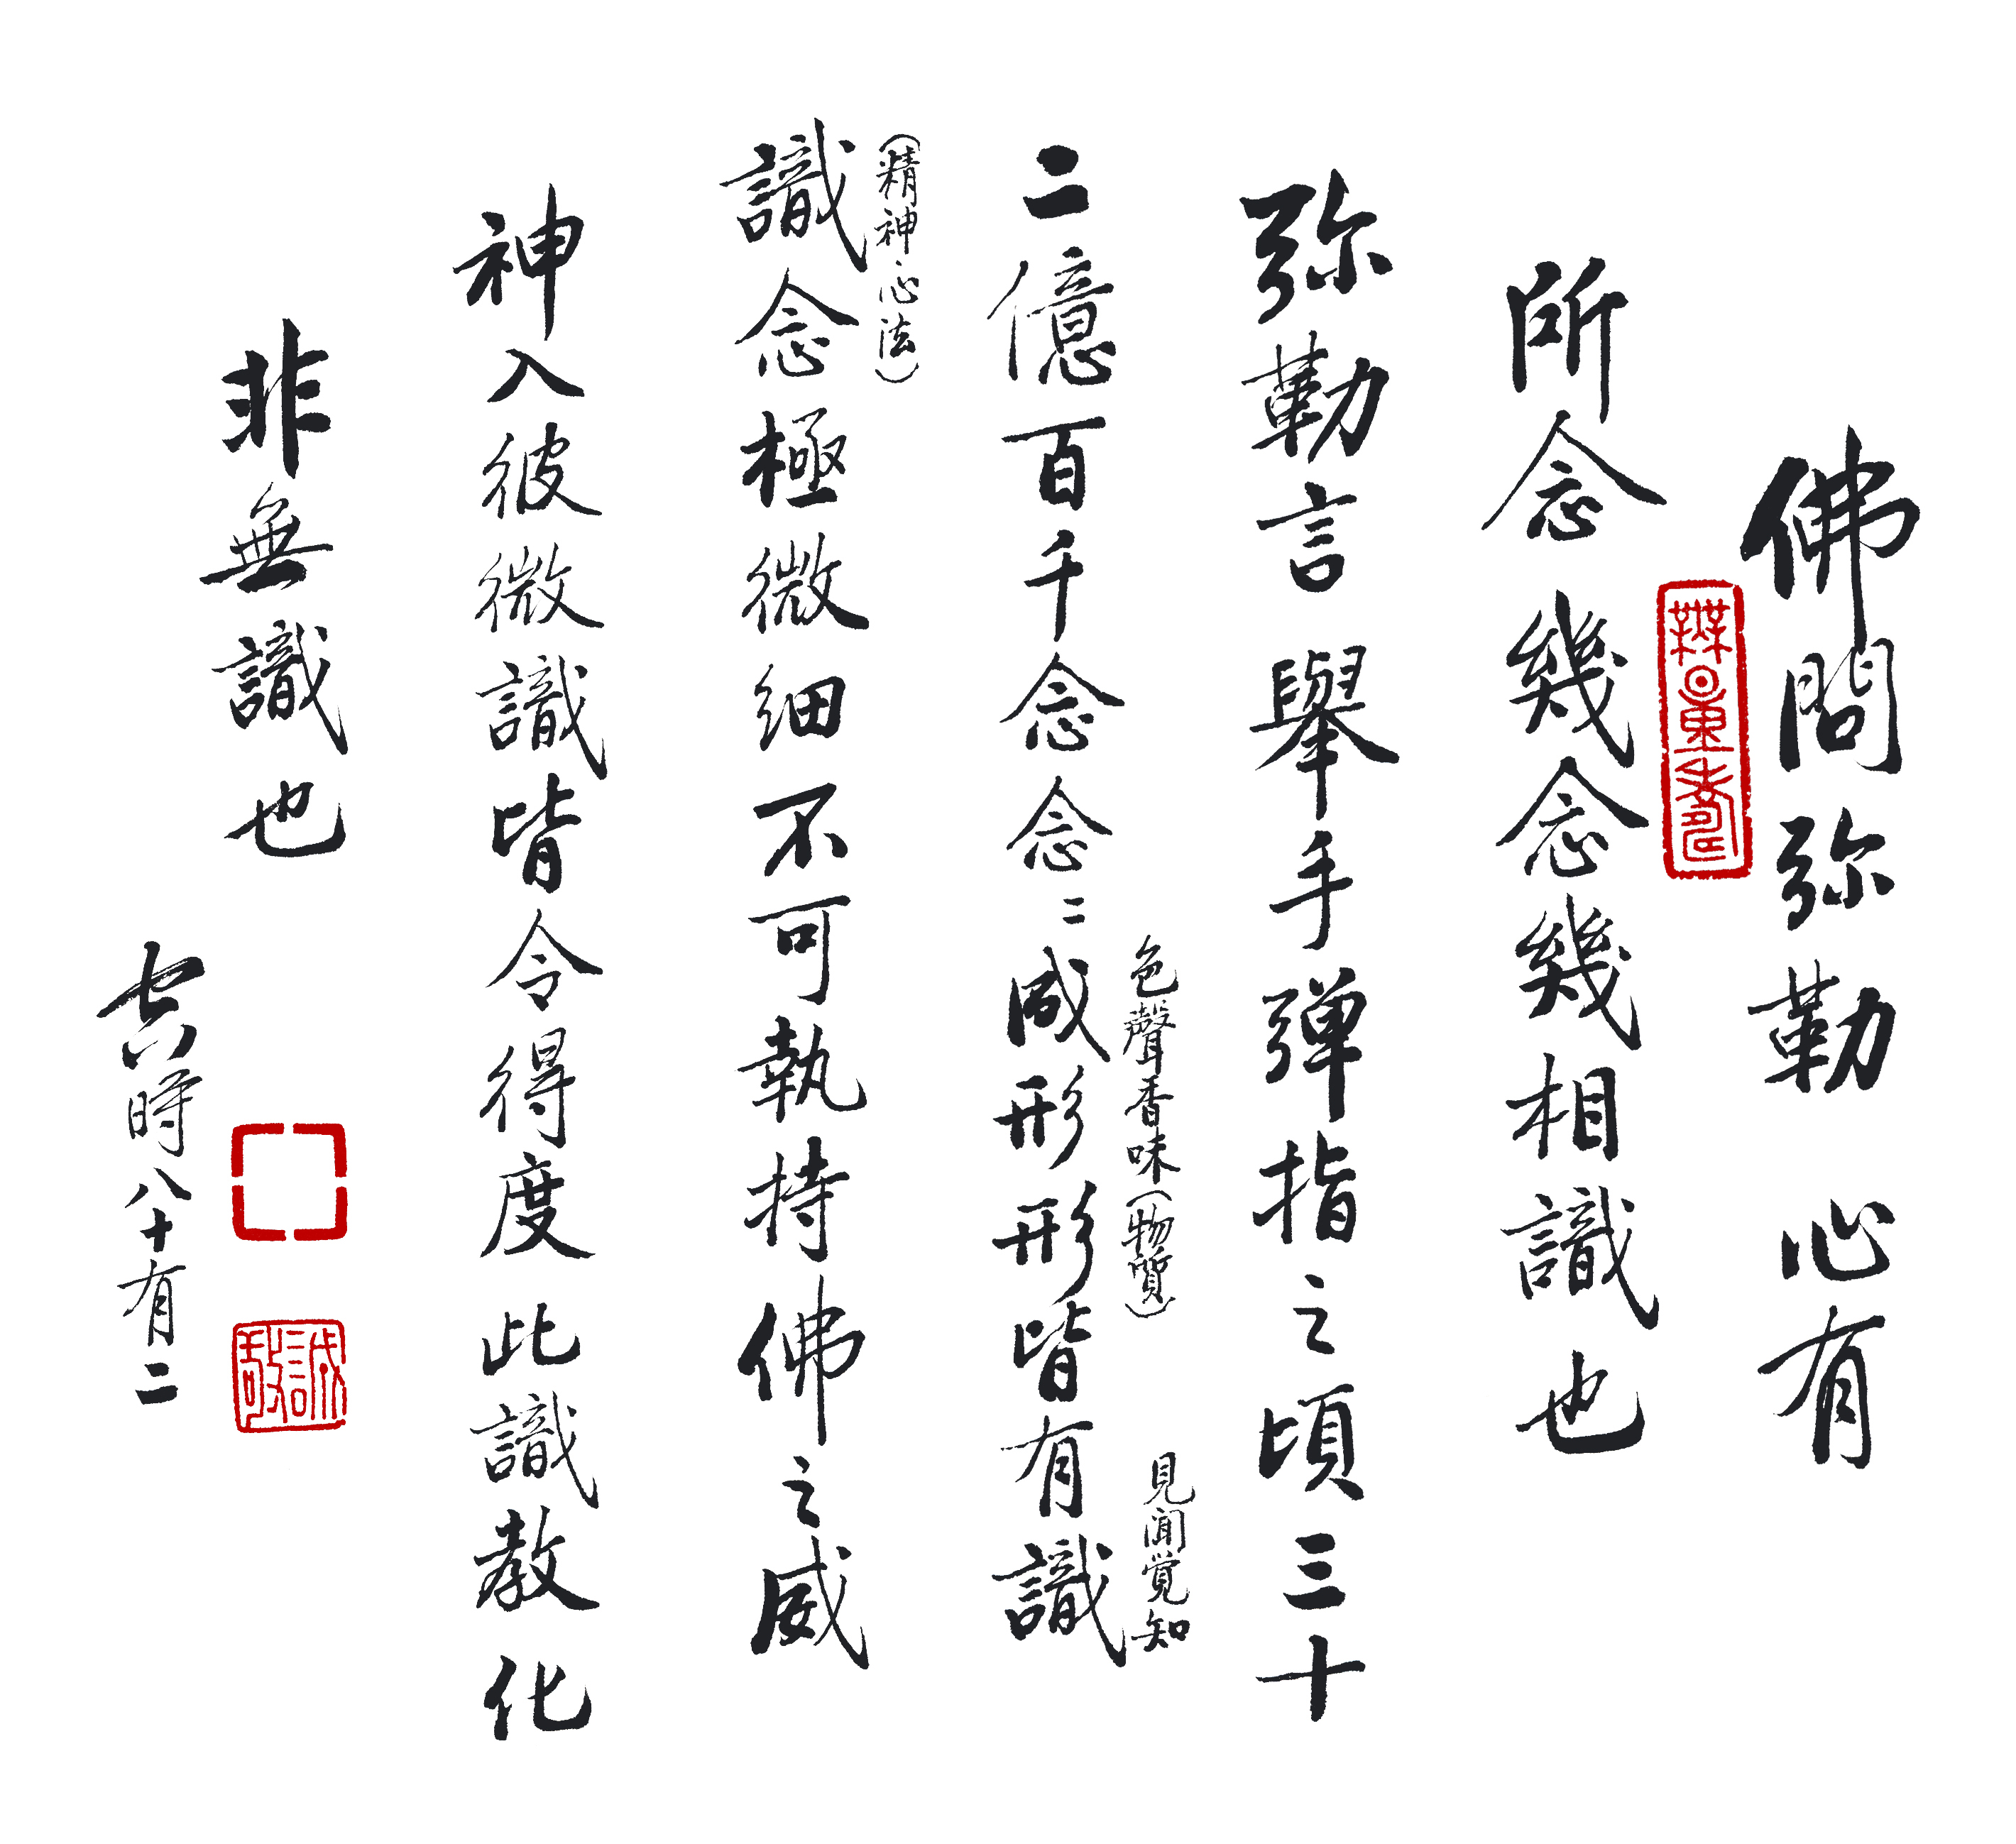 佛問弥勒 心有
無量壽
所念 幾念幾相識也
弥勒言 舉手弹指之頃三十
色聲香味(物質) 見聞覚知
二億百千念念〻成形形皆有識
(精神心法)
識念極微细不可執持佛之威
神入彼微識皆令得度 此識教化
非無識也
誠敬
空時八十有二